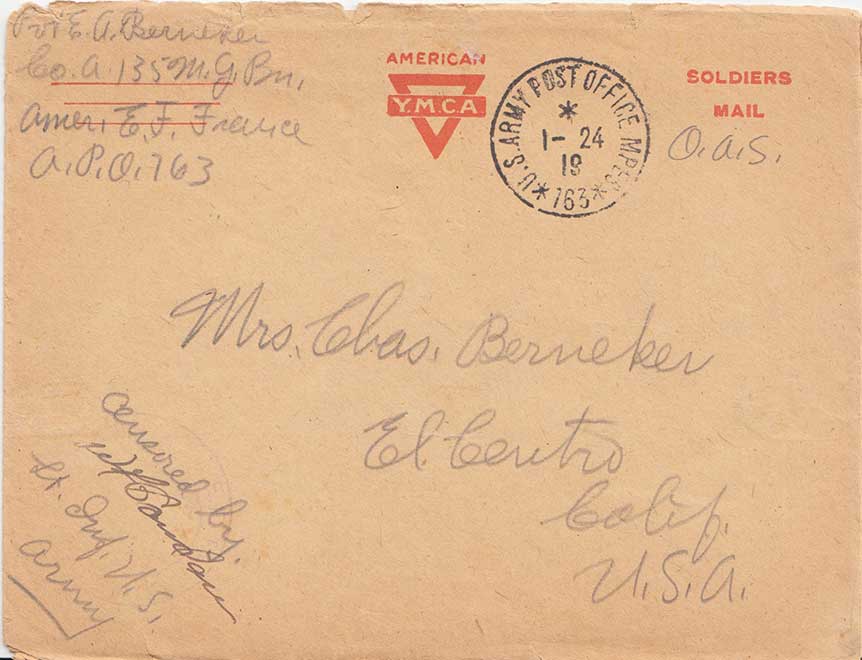 Pvt E. A. Berneker
Co. A. 135 M. G. Bn.
Amer. E. F. France
A. P. O. 763
AMERICAN
Y.M.C.A
U.S. ARMY POST OFFICE MPES
1- 24
19
763
SOLDIERS
MAIL
O.A.S.
Mrs. Chas. Berneker
El Centro
Calif.
U.S.A.
Censored by.
Lt. Inf. U.S.
Army